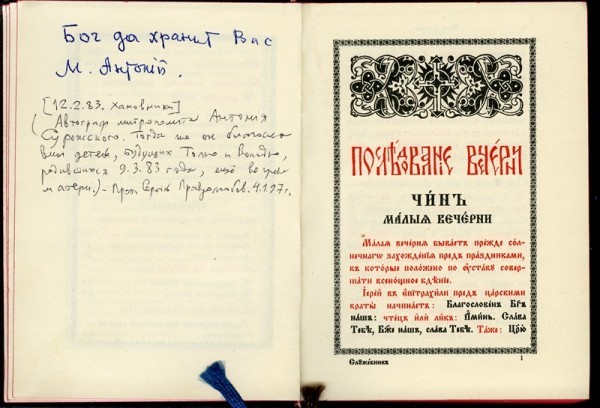 Бог да хранит Вас
М. Антоній.
[12.2.83. Хамовники]
(Автограф митрополита Антония
Сурожского. Тогда же он благосло
вил детей, будущих Толю и Володю,
родившихся 9.3.83 года, ещё во чреве
матери.) - Прот. Сергий Правдолюбов. 4.1.97 г.
ПОСЛѢДОВАНІЕ ВЕЧЕ́РНИ
ЧИ́НЪ
МА́ЛЫЯ ВЕЧЕ́РНИ
Ма́лая вече́рня быва́етъ пре́жде со́л-
нечнагѡ захожде́нїѧ предъ пра́здниками,
въ кото́рые поло́жено по ᲂу҆ста́ву совер-
ша́ти всено́щное бдѣ́нїе.
І҆ере́й въ є҆пїтрахи́ли предъ ца́рскими
враты̀ начина́етъ: Благослове́нъ Бг҃ъ
на́шъ: чте́цъ и҆лѝ ли́къ: А҆ми́нь. Сла́ва
Тебѣ̀, Бж҃е на́шъ, сла́ва Тебѣ̀. Та́же: Цр҃ю̀
Служе́бникъ
1